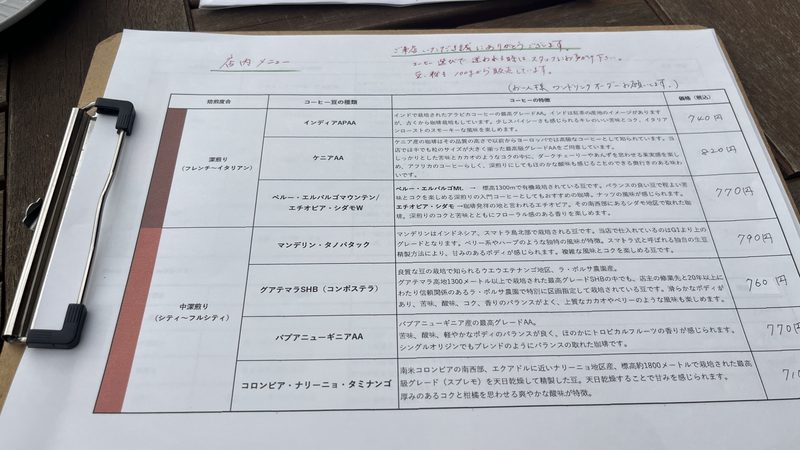 店内メニュー
ご来店いただき誠にありがとうございます。
コーヒー選びで迷われる時はスタッフにお声がけ下さい。
豆・粉も100gから販売しています。
(お一人様 ワンドリンクオーダーお願いします。)
焙煎度合 コーヒー豆の種類 コーヒーの特徴 価格(税込)
深煎り
(フレンチ~イタリアン)
インディアAPAA
インドで栽培されたアラビカコーヒーの最高グレードAA。インドは紅茶の産地のイメージがありますが、
古くから珈琲栽培もしています。少しスパイシーさも感じられるキレのいい苦味とコク、イタリアンローストのスモーキーな風味を楽しめます。
740円
ケニアAA
ケニア産の珈琲はその品質の高さで以前からヨーロッパでは高級なコーヒーとして知られています。当
店では中でも粒のサイズが大きく揃った最高級グレードAAをご用意しています。
しっかりとした苦味とカカオのようなコクの中に、ダークチェリーやあんずを思わせる果実感を楽し
め、アフリカのコーヒーらしく、深煎りにしてもほのかな酸味も感じることのできる奥行きのある味わ
いです。
820円
ペルー・エルパルゴマウンテン/
エチオピア・シダモW
ペルー・エルパルゴMt. → 標高1300mで有機栽培されている豆です。バランスの良い豆で程よい苦
味とコクを楽しめる深煎りの入門コーヒーとしてもおすすめの珈琲。ナッツの風味が感じられます。
エチオピア・シダモ →珈琲発祥の地と言われるエチオピア。その南西部にあるシダモ地区で取れた珈
琲。深煎りのコクと苦味とともにフローラル感のある香りを楽しめます。
770円
中深煎り
(シティ~フルシティ)
マンデリン・タノバタック
マンデリンはインドネシア、スマトラ島北部で栽培される豆です。当店で仕入れているのはG1より上の
グレードとなります。ベリー系やハーブのような独特の風味が特徴。スマトラ式と呼ばれる独自の生豆
精製方法により、甘みのあるボディが感じられます。複雑な風味とコクを楽しめる豆です。
790円
グアテマラSHB(コンポステラ)
良質な豆の栽培で知られるウエウエテナンゴ地区、ラ・ボルサ農園産。
グアテマラ高地1300メートル以上で栽培された最高グレードSHBの中でも、店主の修業先と20年以上に
わたり信頼関係のあるラ・ボルサ農園で特別に区画指定して栽培されている豆です。滑らかなボディが
あり、苦味、酸味、コク、香りのバランスがよく、上質なカカオやベリーのような風味も楽しめます。
760円
パプアニューギニアAA
パプアニューギニア産の最高グレードAA。
苦味、酸味、軽やかなボディのバランスが良く、ほのかにトロピカルフルーツの香りが感じられます。
シングルオリジンでもブレンドのようにバランスの取れた珈琲です。
770円
コロンビア・ナリーニョ・タミナンゴ
南米コロンビアの南西部、エクアドルに近いナリーニョ地区産、標高約1800メートルで栽培された最高
級グレード(スプレモ)を天日乾燥して精製した豆。天日乾燥することで甘みを感じられます。
厚みのあるコクと柑橘を思わせる爽やかな酸味が特徴。